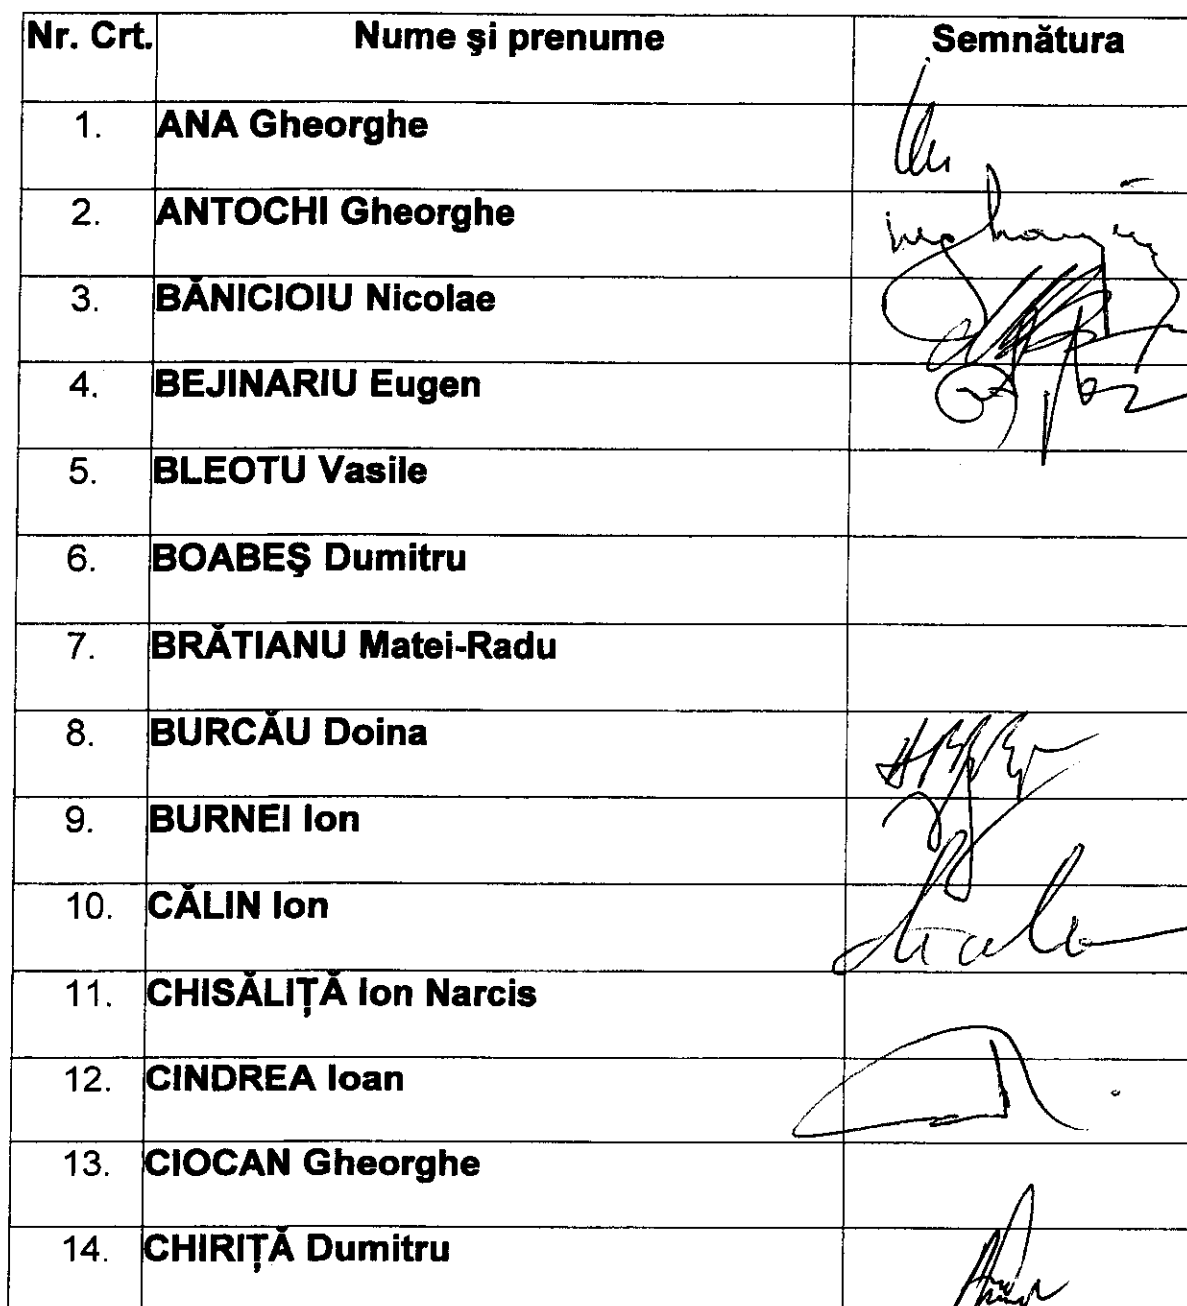 Nr. Crt. Nume şi prenume Semnătura
1. ANA Gheorghe
2. ANTOCHI Gheorghe
3. BĂNICIOIU Nicolae
4. BEJINARIU Eugen
5. BLEOTU Vasile
6. BOABEŞ Dumitru
7. BRĂTIANU Matei-Radu
8. BURCĂU Doina
9. BURNEI Ion
10. CĂLIN Ion
11. CHISĂLIŢĂ Ion Narcis
12. CINDREA Ioan
13. CIOCAN Gheorghe
14. CHIRIŢĂ Dumitru